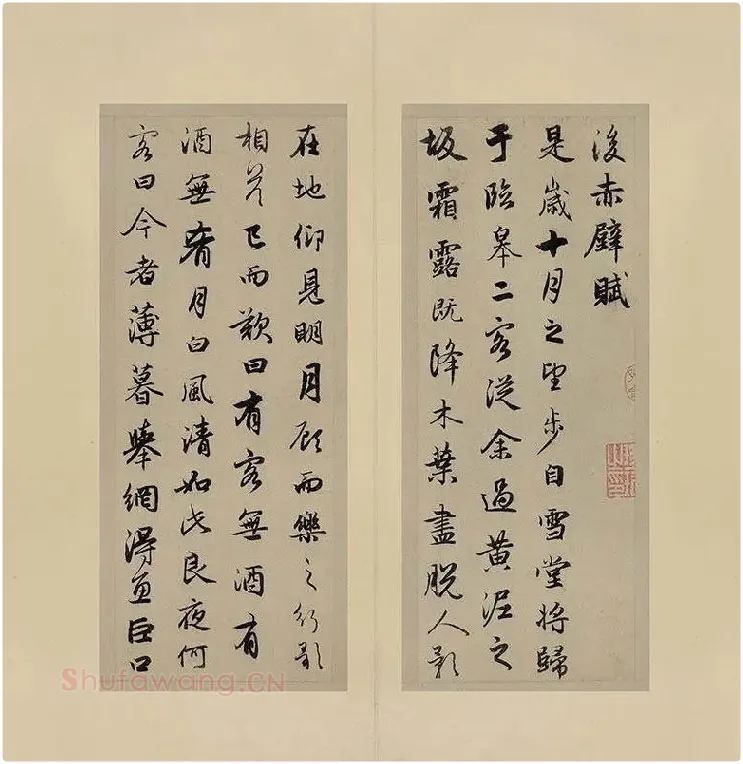 後赤壁賦
是歲十月之望步自雪堂將歸
于臨皋二客從余過黃泥之
坂霜露既降木葉盡脫人影
在地仰見明月顧而樂之行歌
相答已而歎曰有客無酒有
酒無肴月白風清如此良夜何
客曰今者薄暮舉網得魚巨口
Shufawang.CN